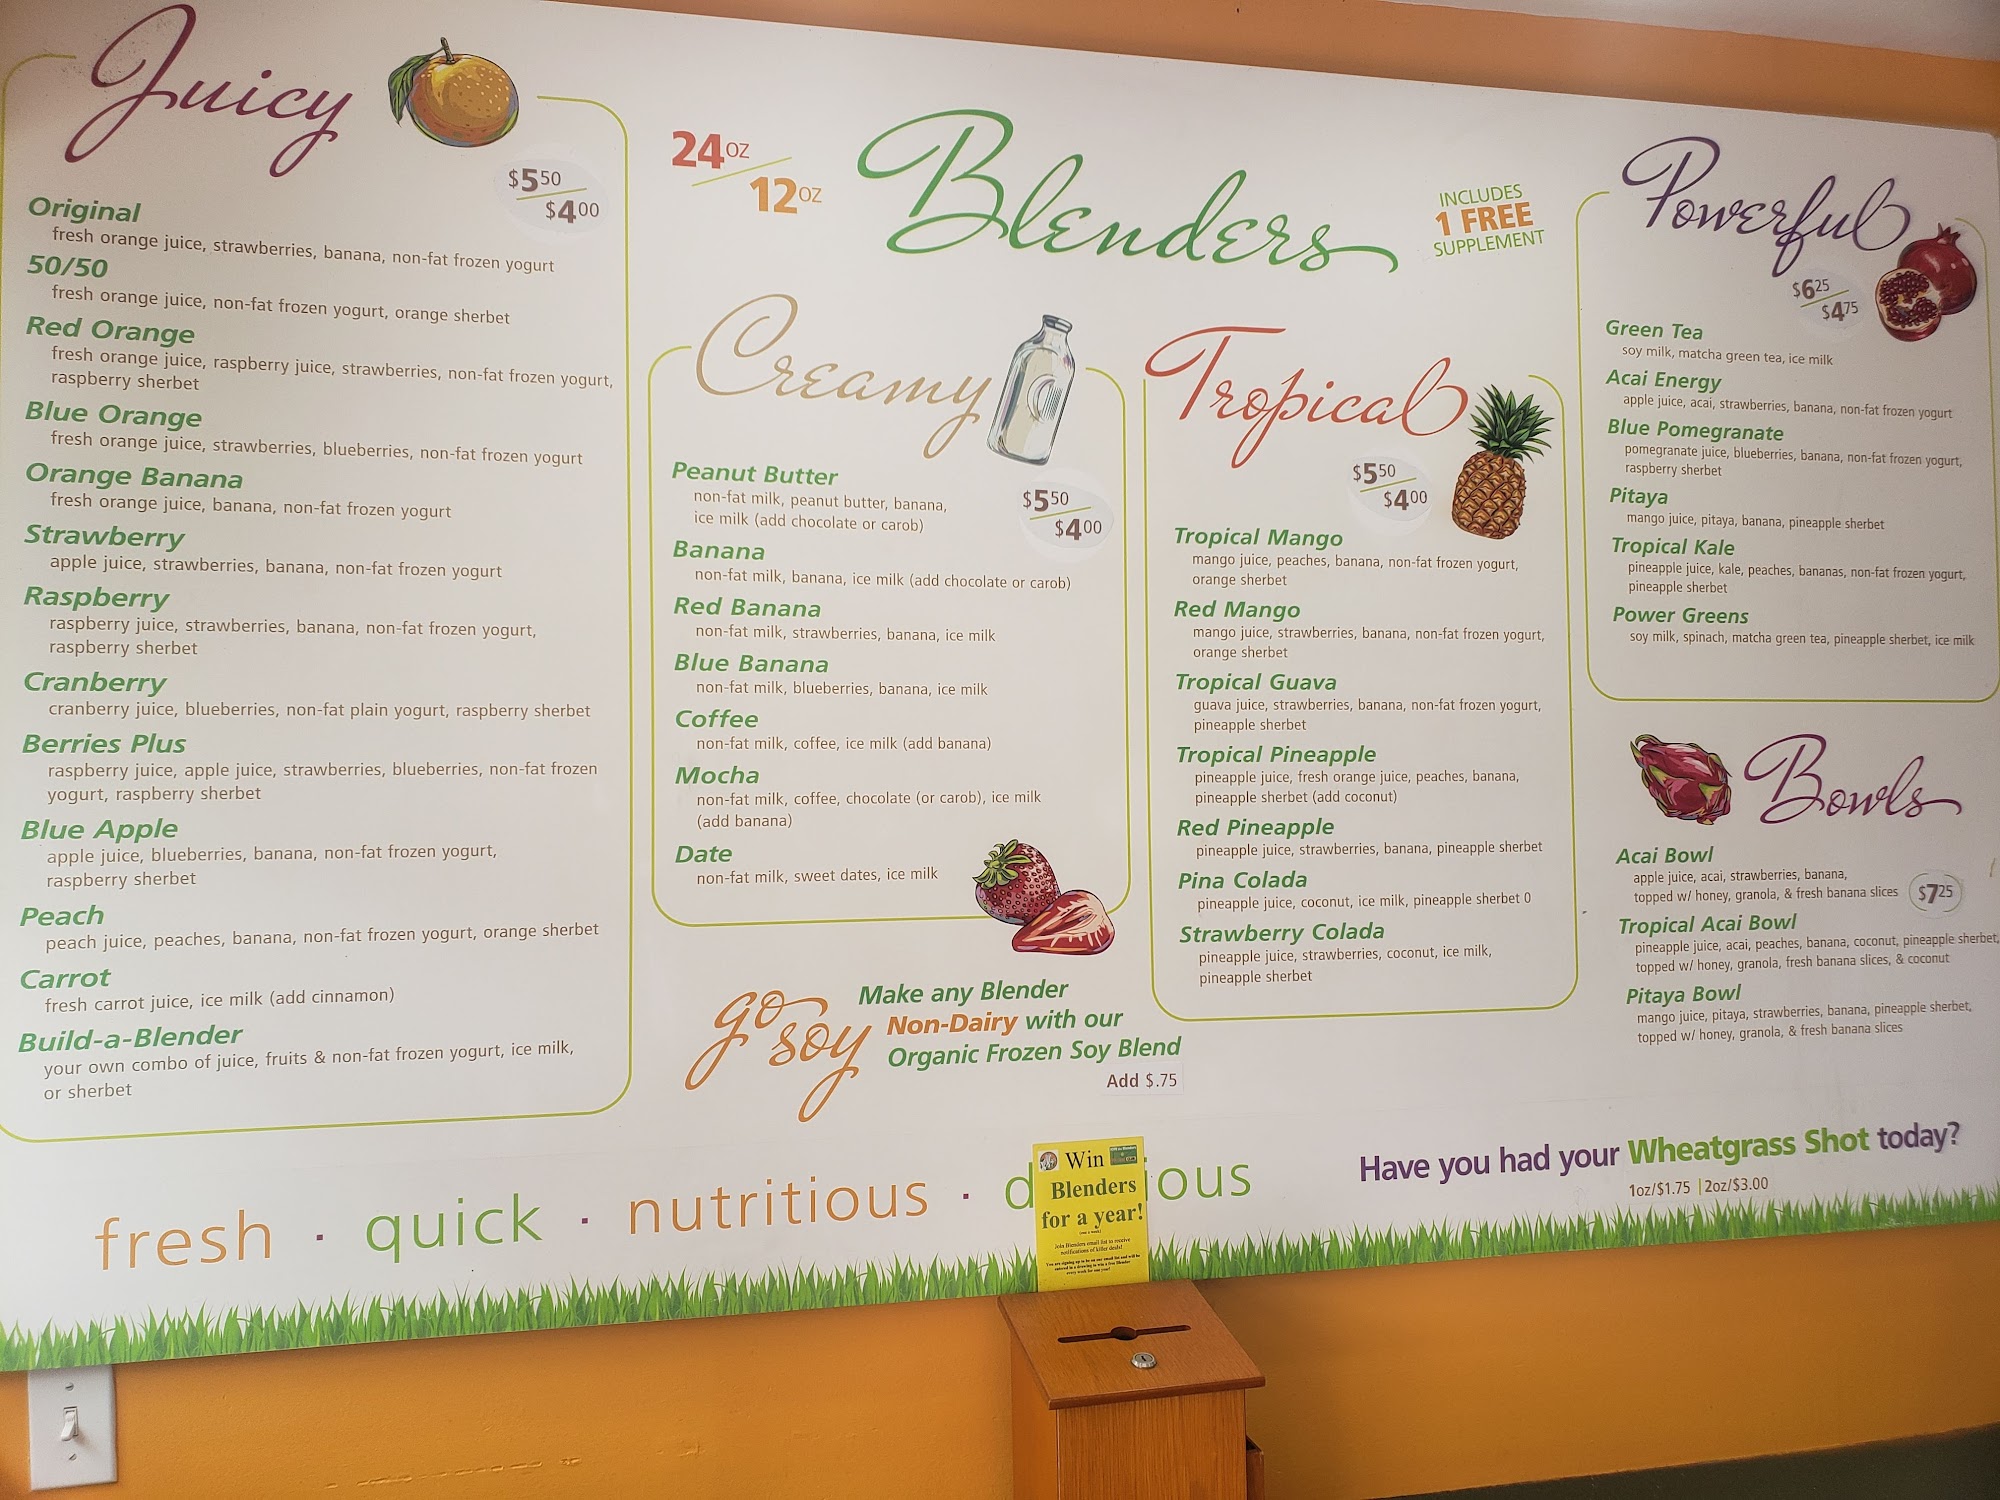 Juicy
$5 50
$4 00
Original
fresh orange juice, strawberries, banana, non-fat frozen yogurt
50/50
fresh orange juice, non-fat frozen yogurt, orange sherbet
Red Orange
fresh orange juice, raspberry juice, strawberries, non-fat frozen yogurt,
raspberry sherbet
Blue Orange
fresh orange juice, strawberries, blueberries, non-fat frozen yogurt
Orange Banana
fresh orange juice, banana, non-fat frozen yogurt
Strawberry
apple juice, strawberries, banana, non-fat frozen yogurt
Raspberry
raspberry juice, strawberries, banana, non-fat frozen yogurt,
raspberry sherbet
Cranberry
cranberry juice, blueberries, non-fat plain yogurt, raspberry sherbet
Berries Plus
raspberry juice, apple juice, strawberries, blueberries, non-fat frozen
yogurt, raspberry sherbet
Blue Apple
apple juice, blueberries, banana, non-fat frozen yogurt,
raspberry sherbet
Peach
peach juice, peaches, banana, non-fat frozen yogurt, orange sherbet
Carrot
fresh carrot juice, ice milk (add cinnamon)
Build-a-Blender
your own combo of juice, fruits & non-fat frozen yogurt, ice milk,
or sherbet
24 OZ
12 OZ
Blenders
INCLUDES
1 FREE
SUPPLEMENT
Creamy
$5 50
$4 00
Peanut Butter
non-fat milk, peanut butter, banana,
ice milk (add chocolate or carob)
Banana
non-fat milk, banana, ice milk (add chocolate or carob)
Red Banana
non-fat milk, strawberries, banana, ice milk
Blue Banana
non-fat milk, blueberries, banana, ice milk
Coffee
non-fat milk, coffee, ice milk (add banana)
Mocha
non-fat milk, coffee, chocolate (or carob), ice milk
(add banana)
Date
non-fat milk, sweet dates, ice milk
go soy
Make any Blender
Non-Dairy with our
Organic Frozen Soy Blend
Add $.75
Tropical
$5 50
$4 00
Tropical Mango
mango juice, peaches, banana, non-fat frozen yogurt,
orange sherbet
Red Mango
mango juice, strawberries, banana, non-fat frozen yogurt,
orange sherbet
Tropical Guava
guava juice, strawberries, banana, non-fat frozen yogurt,
pineapple sherbet
Tropical Pineapple
pineapple juice, fresh orange juice, peaches, banana,
pineapple sherbet (add coconut)
Red Pineapple
pineapple juice, strawberries, banana, pineapple sherbet
Pina Colada
pineapple juice, coconut, ice milk, pineapple sherbet 0
Strawberry Colada
pineapple juice, strawberries, coconut, ice milk,
pineapple sherbet
Powerful
$6 25
$4 75
Green Tea
soy milk, matcha green tea, ice milk
Acai Energy
apple juice, acai, strawberries, banana, non-fat frozen yogurt
Blue Pomegranate
pomegranate juice, blueberries, banana, non-fat frozen yogurt,
raspberry sherbet
Pitaya
mango juice, pitaya, banana, pineapple sherbet
Tropical Kale
pineapple juice, kale, peaches, bananas, non-fat frozen yogurt,
pineapple sherbet
Power Greens
soy milk, spinach, matcha green tea, pineapple sherbet, ice milk
Bowls
Acai Bowl
apple juice, acai, strawberries, banana,
topped w/ honey, granola, & fresh banana slices
$7 25
Tropical Acai Bowl
pineapple juice, acai, peaches, banana, coconut, pineapple sherbet,
topped w/ honey, granola, fresh banana slices, & coconut
Pitaya Bowl
mango juice, pitaya, strawberries, banana, pineapple sherbet,
topped w/ honey, granola, & fresh banana slices
fresh · quick · nutritious · d ious
Win
Blenders
for a year!
Join Blenders email list to receive
notifications of killer deals!
You are signing up to be on our email list and will be
entered in a drawing to win a free Blender
every week for one year!
Have you had your Wheatgrass Shot today?
1oz/$1.75 | 2oz/$3.00